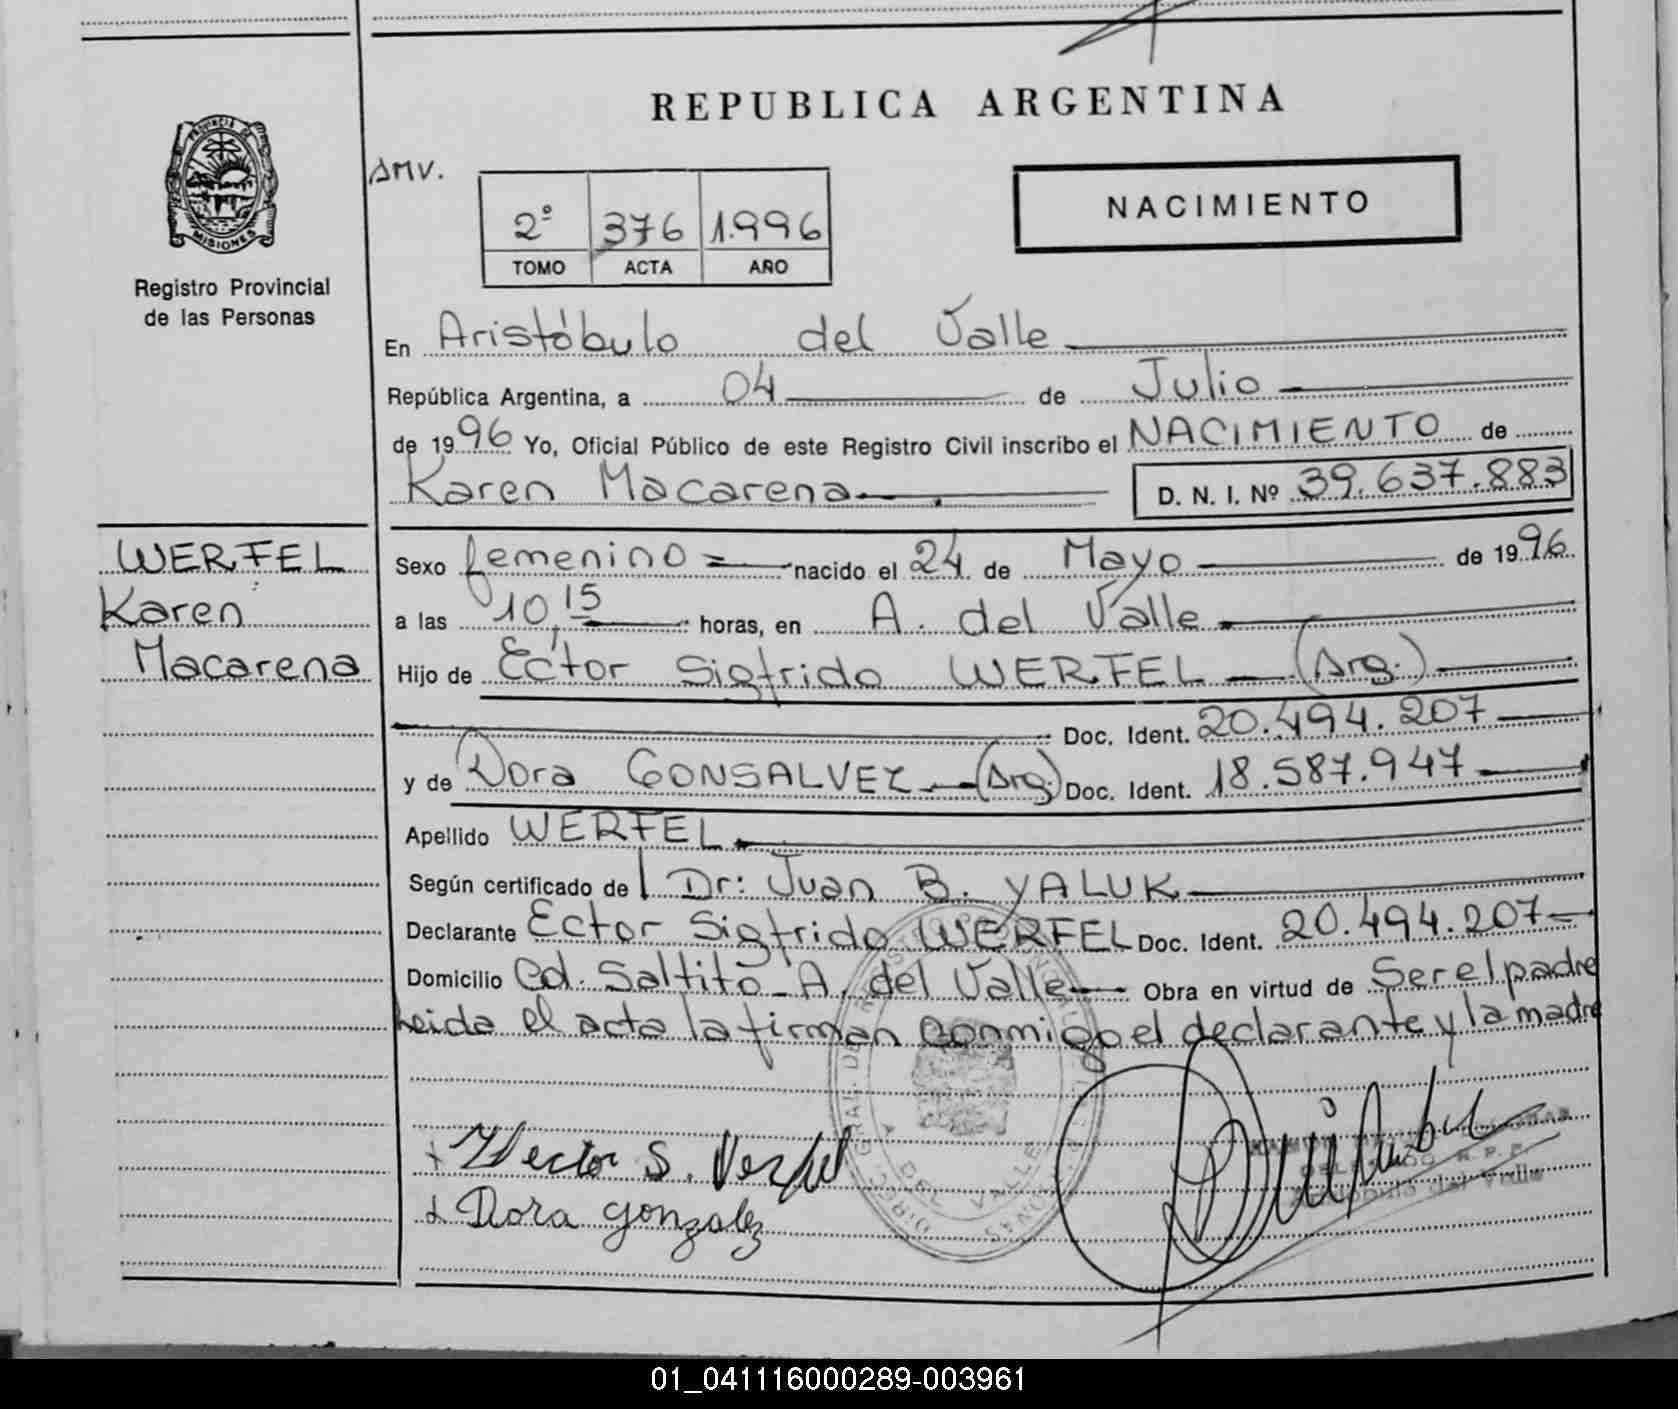 REPUBLICA ARGENTINA
PROVINCIA DE
MISIONES
Registro Provincial
de las Personas
AMV.
2º 376 1.996
TOMO ACTA AÑO
NACIMIENTO
En Aristóbulo del Valle
República Argentina, a 04 de Julio
de 1996 Yo, Oficial Público de este Registro Civil inscribo el NACIMIENTO de
Karen Macarena D. N. I. Nº 39.637.883
WERFEL
Karen
Macarena
Sexo femenino nacido el 24 de Mayo de 1996
a las 10,15 horas, en A. del Valle
Hijo de Ector Sigfrido WERFEL (Arg.)
Doc. Ident. 20.494.207
y de Dora GONSALVEZ (Arg.) Doc. Ident. 18.587.947
Apellido WERFEL
Según certificado de Dr: Juan B. YALUK
Declarante Ector Sigfrido WERFEL Doc. Ident. 20.494.207
Domicilio Cd. Saltito - A. del Valle Obra en virtud de Ser el padre
Leida el acta la firman conmigo el declarante y la madre
Hector S. Verfel
Dora gonzalez
DEL VALLE
DELEGADO R. P. P.
Aristóbulo del Valle
01_041116000289-003961